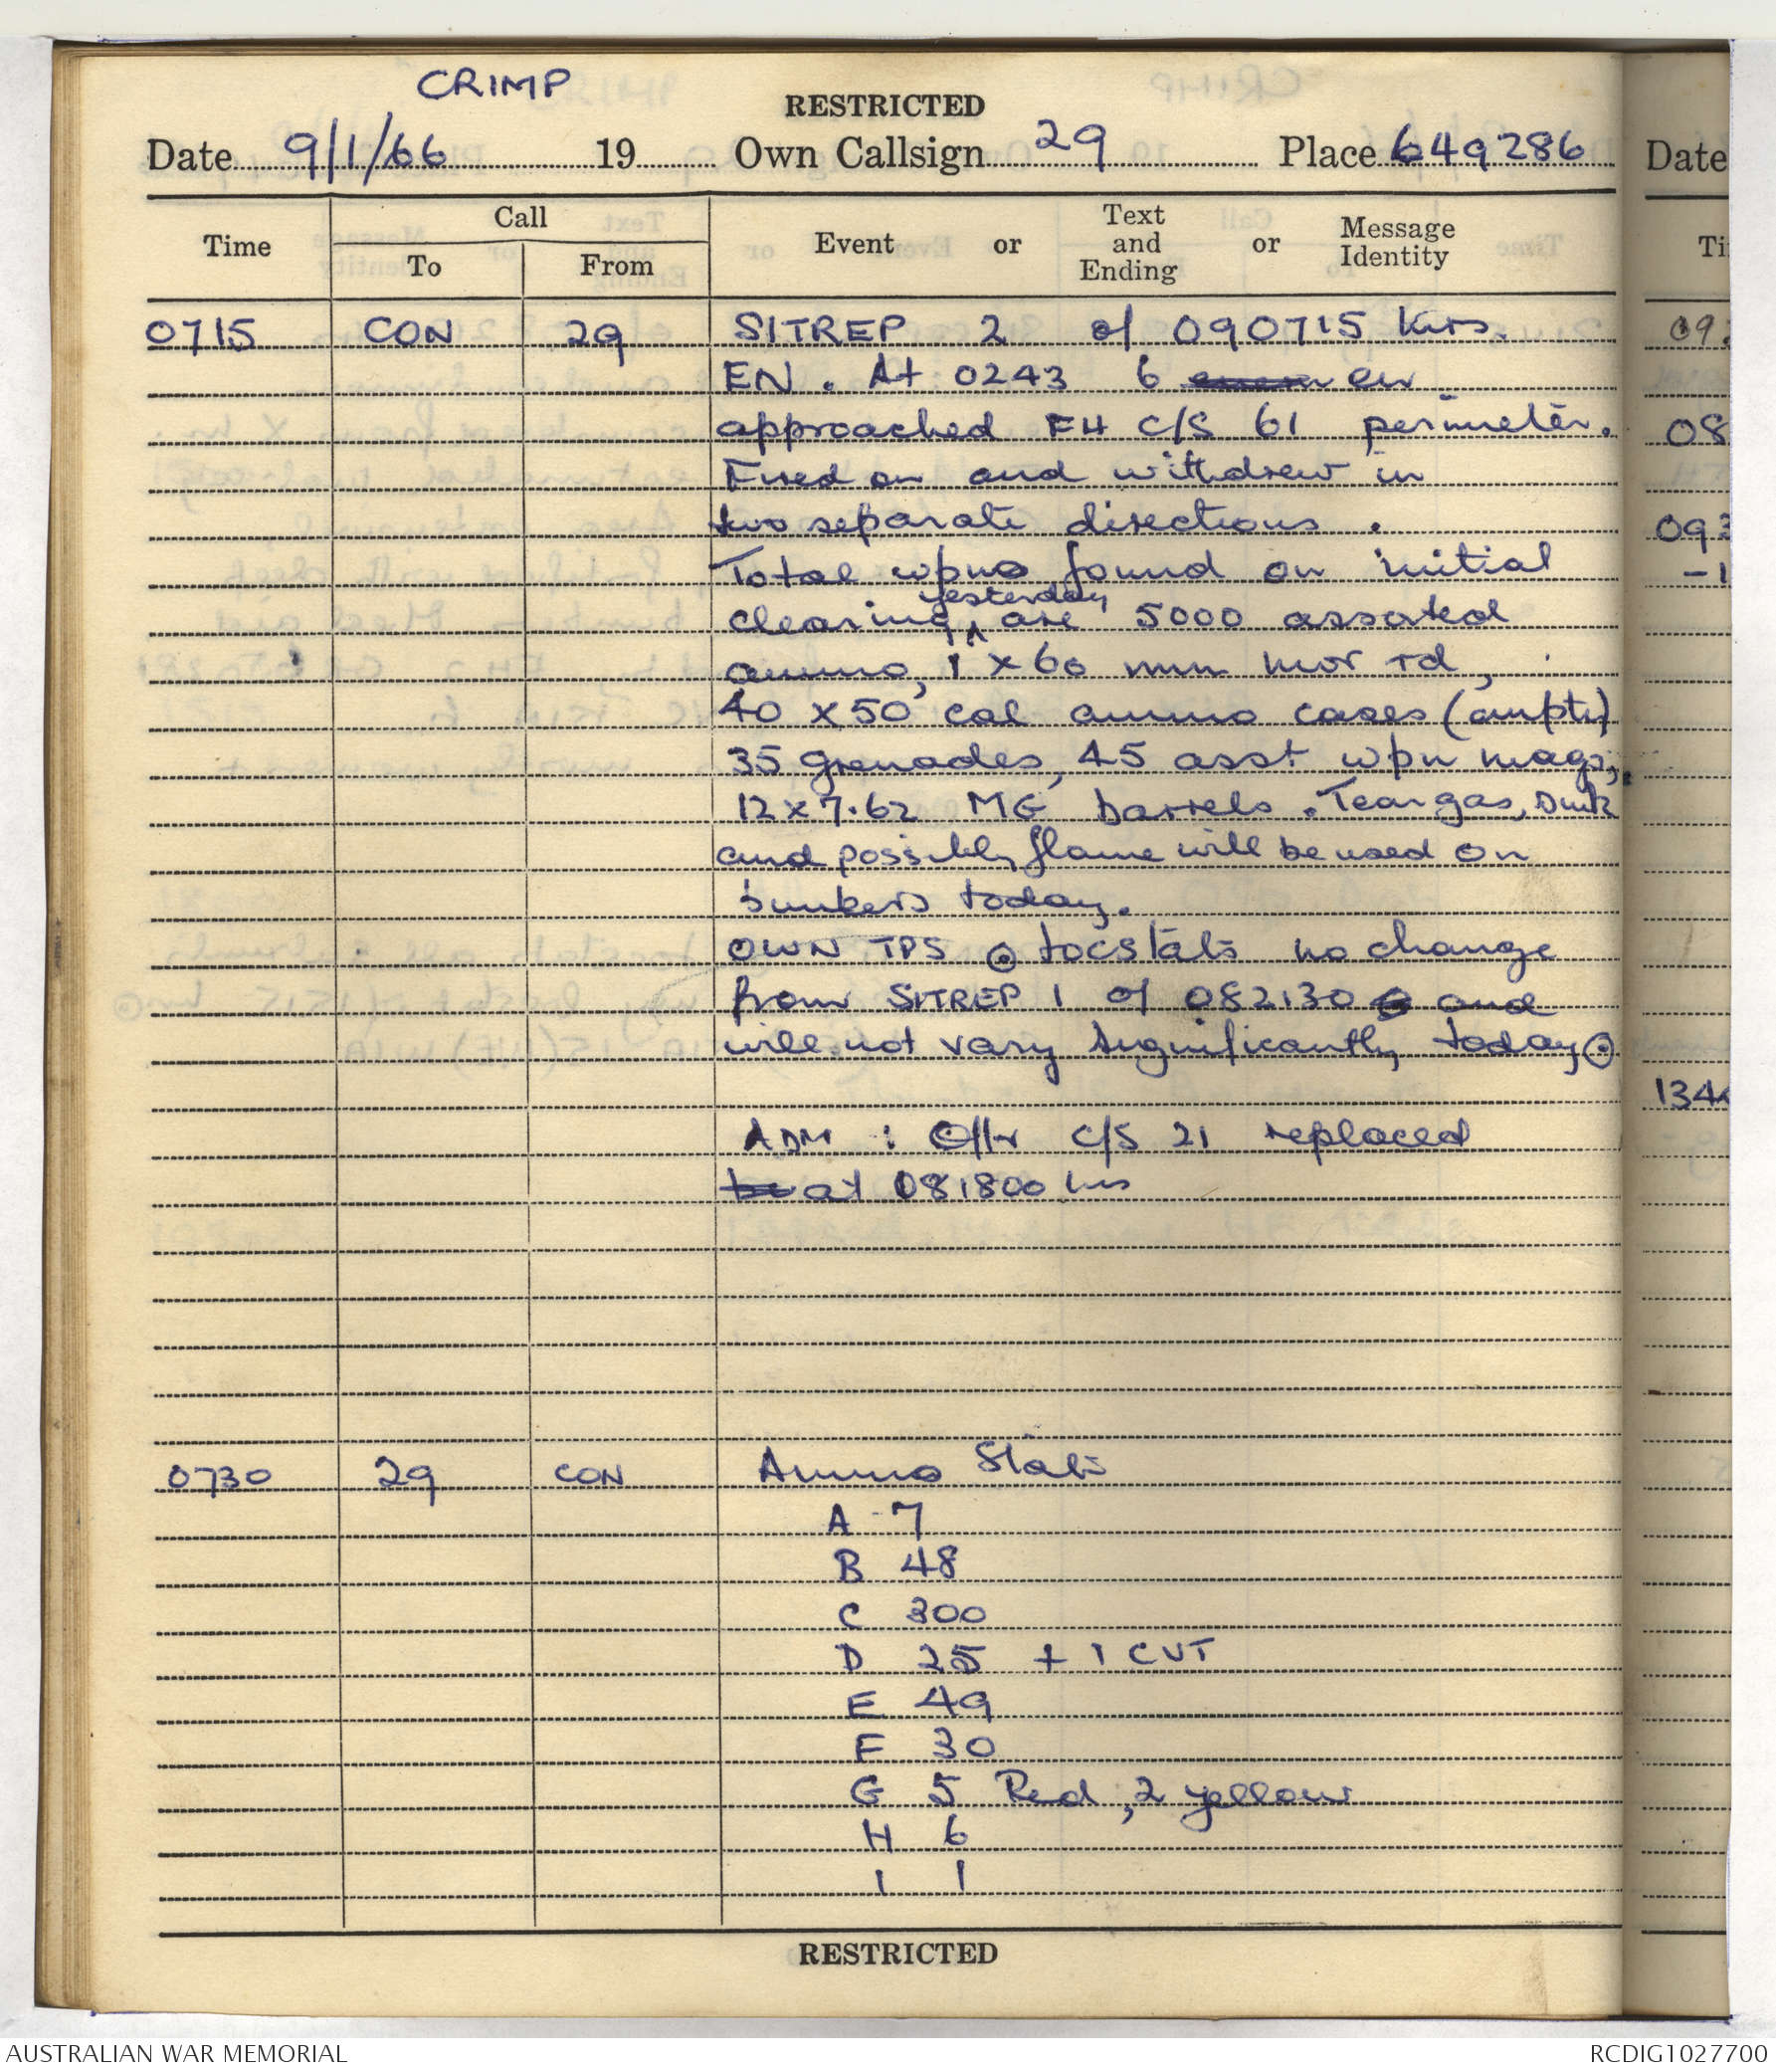 CRIMP
RESTRICTED
Date 9/1/66 19 Own Callsign 29 Place 649286
Time Call To From Event or Text and Ending or Message Identity
0715 CON 29 SITREP 2 of 090715 hrs.
EN. At 0243 6 en
approached FH C/S 61 perimeter.
Fired on and withdrew in
two separate directions.
Total wpns found on initial
clearing yesterday are 5000 assorted
ammo, 1 x 60 mm mor rd,
40 x 50 cal ammo cases (empty)
35 grenades, 45 asst wpn mags,
12 x 7.62 MG barrels. Tear gas,
and possibly flame will be used on
bunkers today.
OWN TPS ⊙ locstats no change
from SITREP 1 of 082130 and
will not vary significantly today ⊙
ADM : Offr C/S 21 replaced
at 081800 hrs
0730 29 CON Ammo Stats
A - 7
B 48
C 300
D 25 + 1 CUT
E 49
F 30
G 5 Red, 2 yellow
H 6
I 1
RESTRICTED
Date
Ti
09
08
093
- 1
134
AUSTRALIAN WAR MEMORIAL
RCDIG1027700